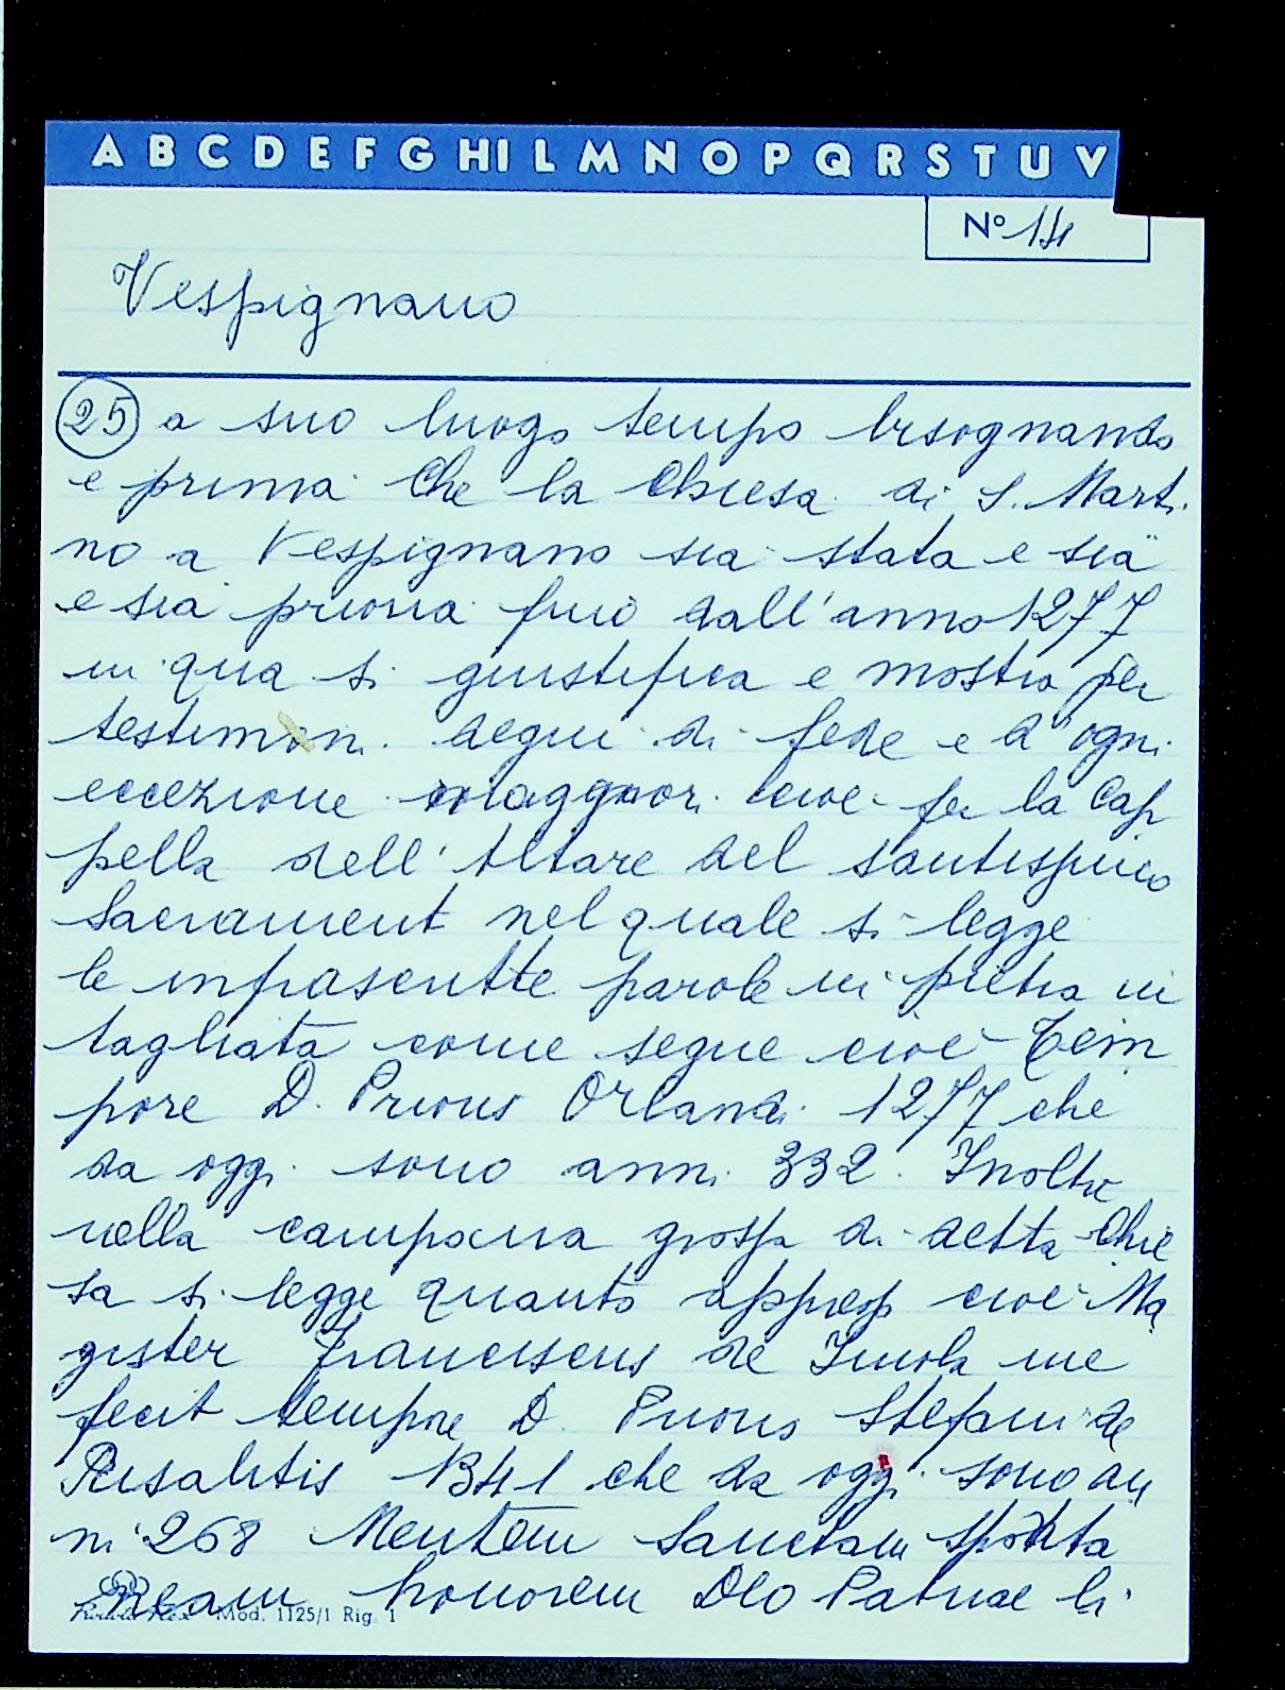 A B C D E F G H I L M N O P Q R S T U V
Nº 14
Vespignano
25 a suo luogo tempo bisognando
e prima che la Chiesa di S. Marti
no a Vespignano sia stata e sia
e sia prioria fino dall'anno 1277
in qua si giustifica e mostra per
testimoni degni di fede e d'ogni
eccezione maggiori cioè per la Cap
pella dell'Altare del Santissimo
Sacrament nel quale si legge
le infrascritte parole in pietra in
tagliata come segue cioè Tem
pore D. Prioris Orlandi 1277 che
da oggi sono anni 332. Inoltre
nella campana grossa di detta Chie
sa si legge quanto appresso cioè Ma
gister Franciscus de Imola me
fecit tempore D. Prioris Stefani de
Risalitis 1341 che da oggi sono an
ni 268 Mentem Sanctam sponta
neam honorem Deo Patriae li
Mod. 1125/1 Rig. 1